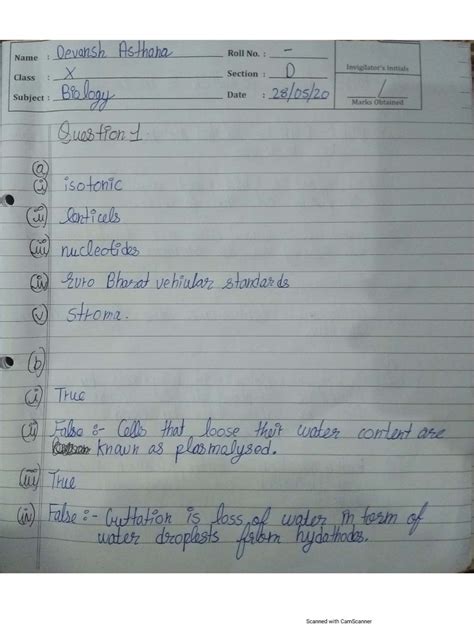 Name : Devansh Asthana Roll No. : -
Class : X Section : D Invigilator's Initials
Subject : Biology Date : 28/05/20 Marks Obtained
Question 1
(a)
(i) isotonic
(ii) lenticels
(iii) nucleotides
(iv) Euro Bharat vehiular standards
(v) stroma.
(b)
(i) True
(ii) False :- Cells that loose their water content are
known as plasmalysed.
(iii) True
(iv) False :- Guttation is loss of water in term of
water droplests from hydathodes.
Scanned with CamScanner